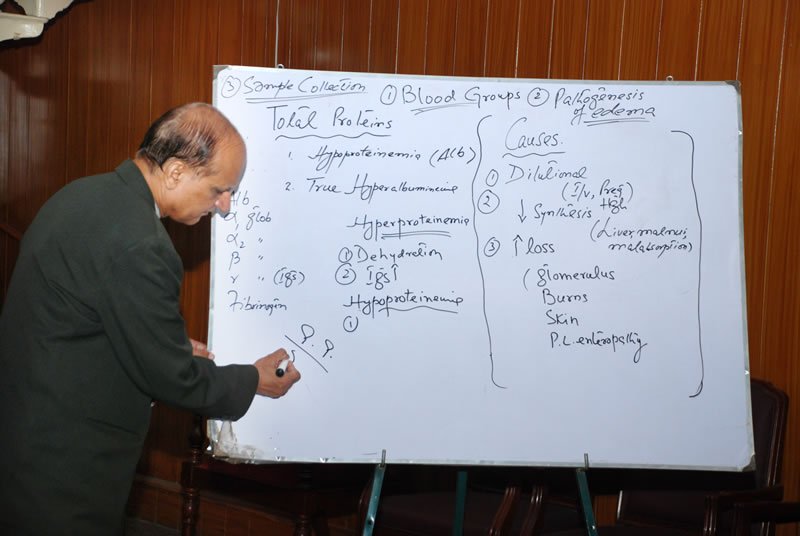 ③ Sample Collection ① Blood Groups ② Pathogenesis of edema
Total Proteins
1. Hypoproteinemia (Alb)
2. True Hyperalbuminemia
Alb
α, glob
α₂ "
β "
γ " (Igs)
Fibrinogen
Hyperproteinemia
① Dehydretion
② Igs ↑
Hypoproteinemia
①
P. P.
Causes.
① Dilutional
(I/v, Preg)
② ↓ Synthesis
(Liver, malnu, malabsorption)
③ ↑ loss
(glomerulus
Burns
Skin
P.L. enteropathy